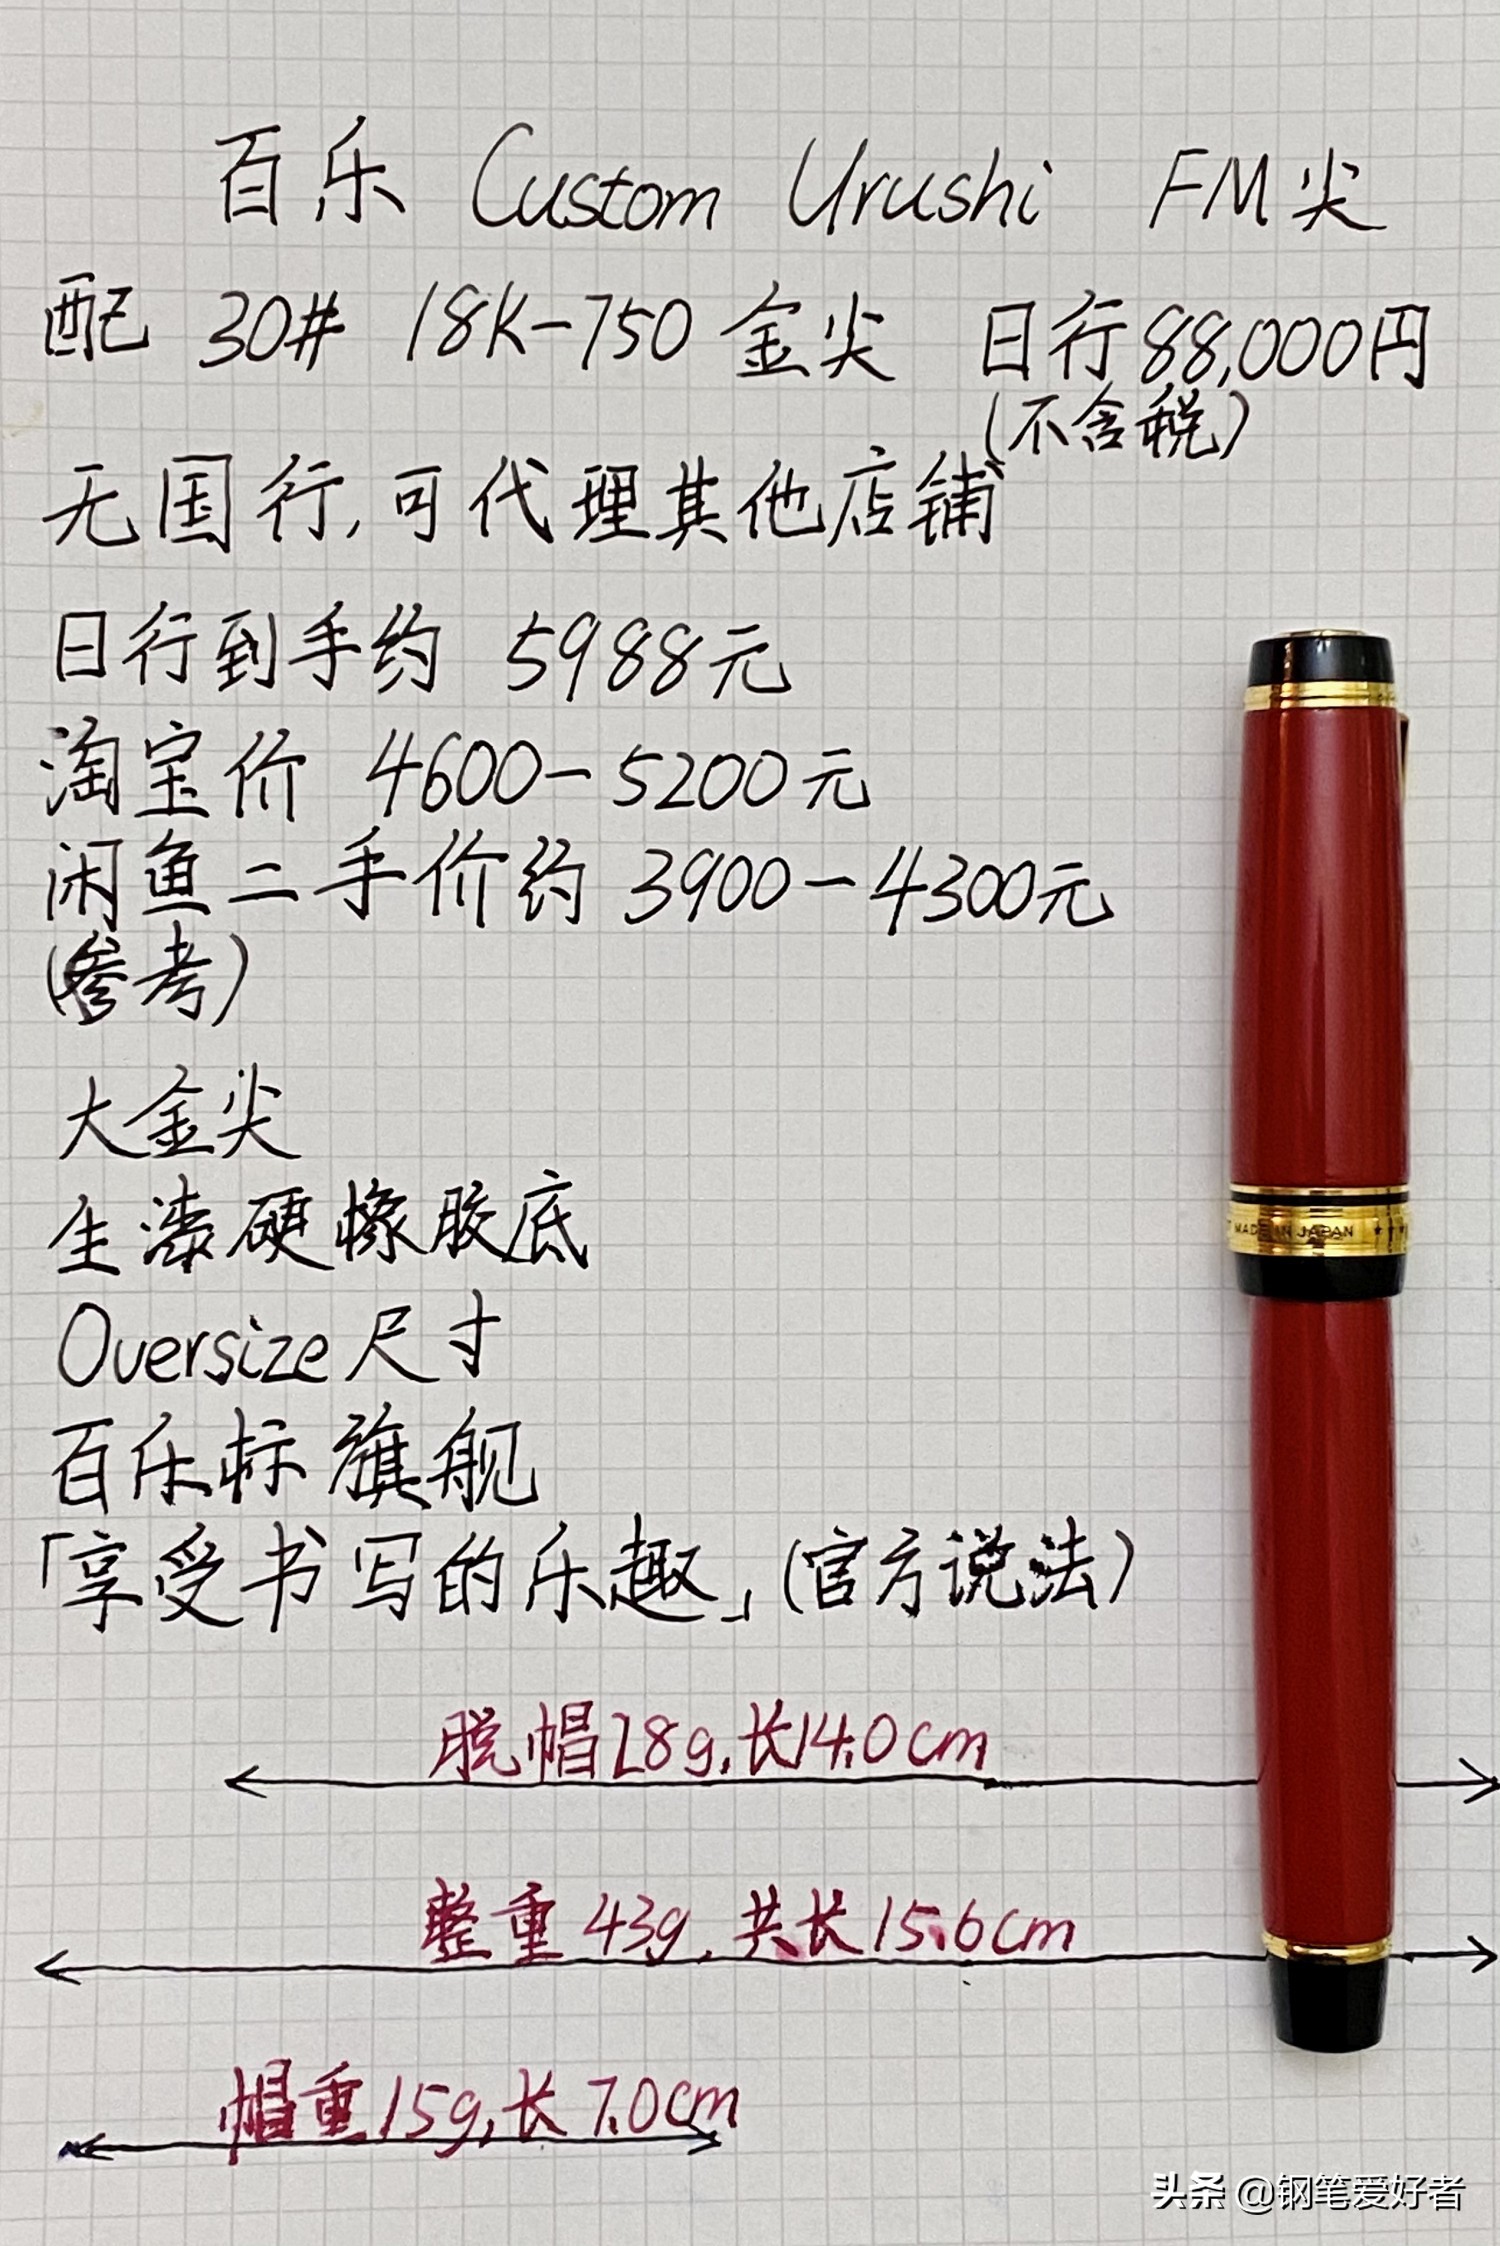 百乐 Custom Urushi FM尖
配 30# 18K-750 金尖 日行88,000円
(不含税)
无国行,可代理其他店铺
日行到手约 5988元
淘宝价 4600-5200元
闲鱼二手价约 3900-4300元
(参考)
大金尖
生漆硬橡胶底
Oversize尺寸
百乐标旗舰
「享受书写的乐趣」(官方说法)
MADE IN JAPAN ★★
脱帽28g,长14.0cm
整重43g,共长15.6cm
帽重15g,长7.0cm
头条 @钢笔爱好者